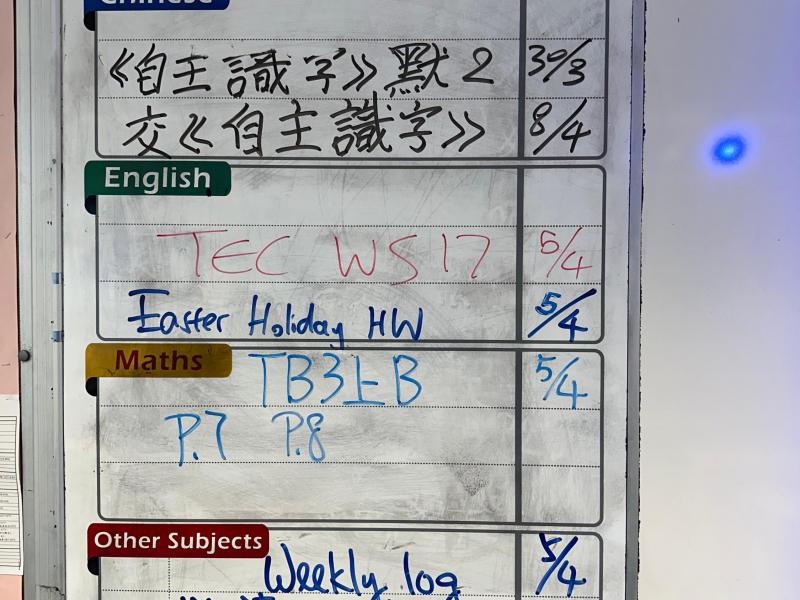 Chinese
《自主識字》默2 30/3
交《自主識字》 8/4
English
TEC WS 17 5/4
Easter Holiday HW 5/4
Maths TB3上B 5/4
P.7 P.8
Other Subjects Weekly log 5/4